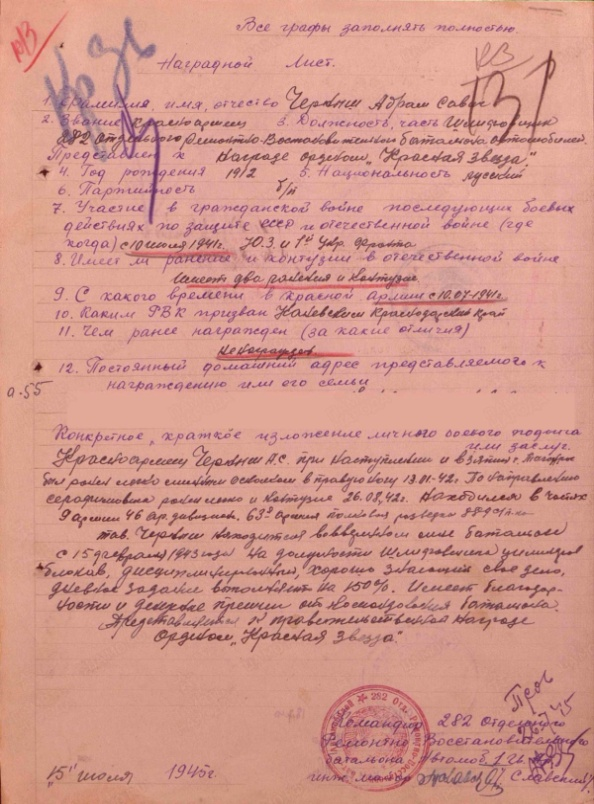 Все графы заполнять полностью.
Наградной Лист.
1. Фамилия, имя, отчество Черныш Абрам
2. Звание красноармеец 3. Должность, часть Шлифовщик
282 Отдельного Ремонтно-Восстановительного батальона автомобилей.
Представлен к Награде орденом "Красная Звезда".
4. Год рождения 1912 5. Национальность русский
6. Партийность б/п
7. Участие в гражданской войне последующих боевых
действиях по защите СССР и отечественной войне (где
когда) с 10 июля 1941г. Ю.З. и 1й Укр. Фронта
8. Имеет ли ранение и контузии в отечественной войне
Имеет два ранения и контузию
9. С какого времени в красной армии с 10.07-1941г.
10. Каким РВК призван Каневским Краснодарский край
11. Чем ранее награжден (за какие отличия)
Ненагражден
12. Постоянный домашний адрес представляемого к
награждению или его семьи
а-55
Конкретное, краткое изложение личного боевого подвига
или заслуг.
Красноармеец Черныш А.С. при наступлении и взятии г.
был ранен осколком в правую ногу 13.01-42г. По направлению
ранен легко и контузия 26.08.42г. Находился в частях
9 армии 46 дивизион, 63я армия полковая разведка
тов. Черныш находится в батальоне
с 15 февраля 1943 года на должности Шлифовщика цилиндров
блоков, дисциплинирован, хорошо знающий свое дело,
дневное задание выполняет на 150%. Имеет благодар-
ности и денежные премии от командования батальона.
Представляется к правительственной награде
Орденом "Красная Звезда".
282 Отд.
Командир 282 Отдельного
Ремонтно Восстановительного
батальона
инж. майор Славский
"15" июля 1945г.